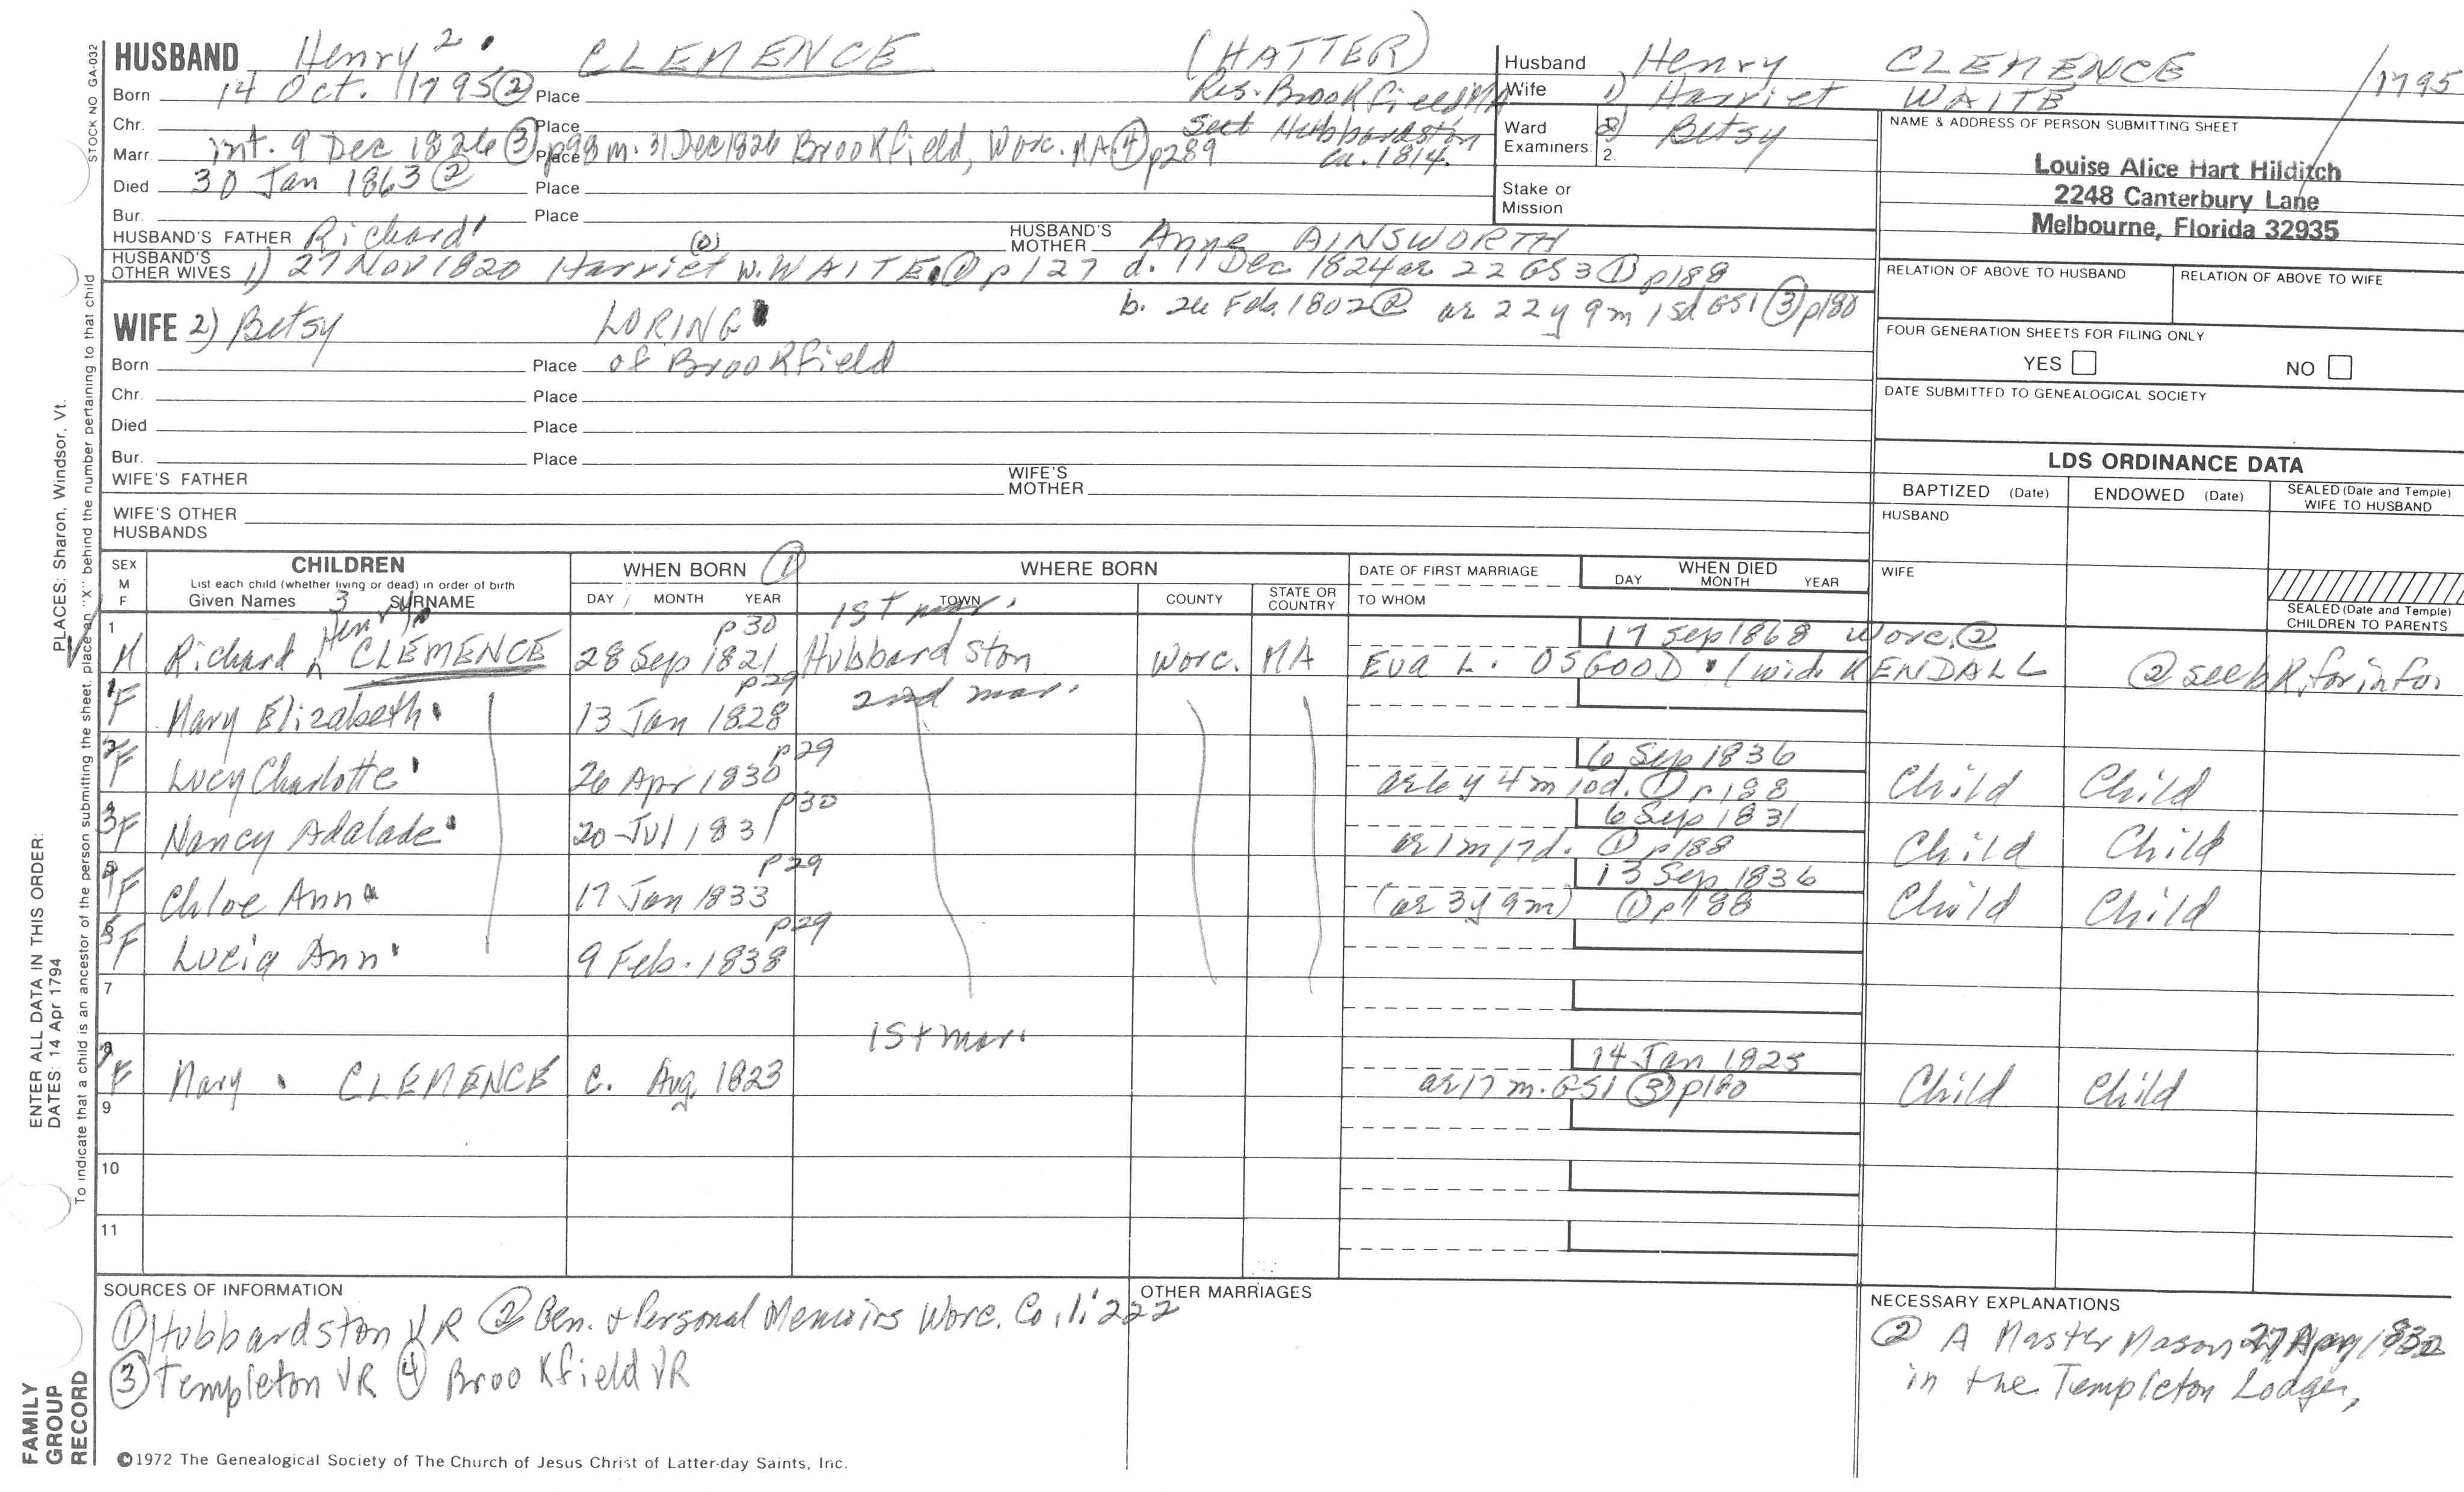 STOCK NO GA-032
HUSBAND Henry 2. CLEMENCE (HATTER)
Born 14 Oct. 1795 ② Place Res. Brookfield MA
Chr. Place Sect Hubbardston
Marr. int. 9 Dec 1826 ③ p98 Place m. 31 Dec 1826 Brookfield, Worc. MA. ④ p289 ca. 1814.
Died 30 Jan 1863 ② Place
Bur. Place
HUSBAND'S FATHER Richard' HUSBAND'S MOTHER Anne AINSWORTH
HUSBAND'S OTHER WIVES 1) 27 Nov 1820 Harriet W. WAITE ① p127 d. 11 Dec 1824 ae 22 GS3 ① p188
b. 26 Feb. 1802 ② ae 22 y 9 m 15d GS1 ③ p180
WIFE 2) Betsy LORING
Born Place of Brookfield
Chr. Place
Died Place
Bur. Place
WIFE'S FATHER WIFE'S MOTHER
WIFE'S OTHER HUSBANDS
Husband Henry CLEMENCE /1795
Wife 1) Harriet WAITE
Ward Examiners: 2) Betsy
2.
Stake or Mission
NAME & ADDRESS OF PERSON SUBMITTING SHEET
Louise Alice Hart Hilditch
2248 Canterbury Lane
Melbourne, Florida 32935
RELATION OF ABOVE TO HUSBAND RELATION OF ABOVE TO WIFE
FOUR GENERATION SHEETS FOR FILING ONLY
YES NO
DATE SUBMITTED TO GENEALOGICAL SOCIETY
LDS ORDINANCE DATA
BAPTIZED (Date) ENDOWED (Date) SEALED (Date and Temple) WIFE TO HUSBAND
HUSBAND
WIFE
SEALED (Date and Temple) CHILDREN TO PARENTS
SEX M F CHILDREN WHEN BORN ① WHERE BORN DATE OF FIRST MARRIAGE WHEN DIED
List each child (whether living or dead) in order of birth DAY MONTH YEAR
Given Names SURNAME DAY MONTH YEAR TOWN COUNTY STATE OR COUNTRY TO WHOM
3 1st mar.
1 Henry p30 17 Sep 1868 Worc. ②
M Richard CLEMENCE 28 Sep 1821 Hubbardston Worc. MA Eva L. OSGOOD (wid. KENDALL ② see bk for infor
1 F Mary Elizabeth 13 Jan 1828 p29 2nd mar.
2 F Lucy Charlotte 26 Apr 1830 p29 6 Sep 1836 ae 6 y 4 m 10d. ① p188 Child Child
3 F Nancy Adalade 20 Jul 1831 p30 6 Sep 1831 ae 1 m 17d. ① p188 Child Child
5 F Chloe Ann 17 Jan 1833 p29 13 Sep 1836 (ae 3y 9m) ① p188 Child Child
6 F Lucia Ann 9 Feb. 1838 p29
7
1st mar.
8 F Mary CLEMENCE c. Aug. 1823 14 Jan 1825 ae 17 m. GS1 ③ p180 Child Child
9
10
11
SOURCES OF INFORMATION
① Hubbardston VR ② Gen. & Personal Memoirs Worc. Co. 1:222
③ Templeton VR ④ Brookfield VR
OTHER MARRIAGES
NECESSARY EXPLANATIONS
② A Master Mason
in the Templeton Lodge,
©1972 The Genealogical Society of The Church of Jesus Christ of Latter-day Saints, Inc.
FAMILY GROUP RECORD
ENTER ALL DATA IN THIS ORDER:
DATES: 14 Apr 1794
PLACES: Sharon, Windsor, Vt.
To indicate that a child is an ancestor of the person submitting the sheet, place an "X" behind the number pertaining to that child